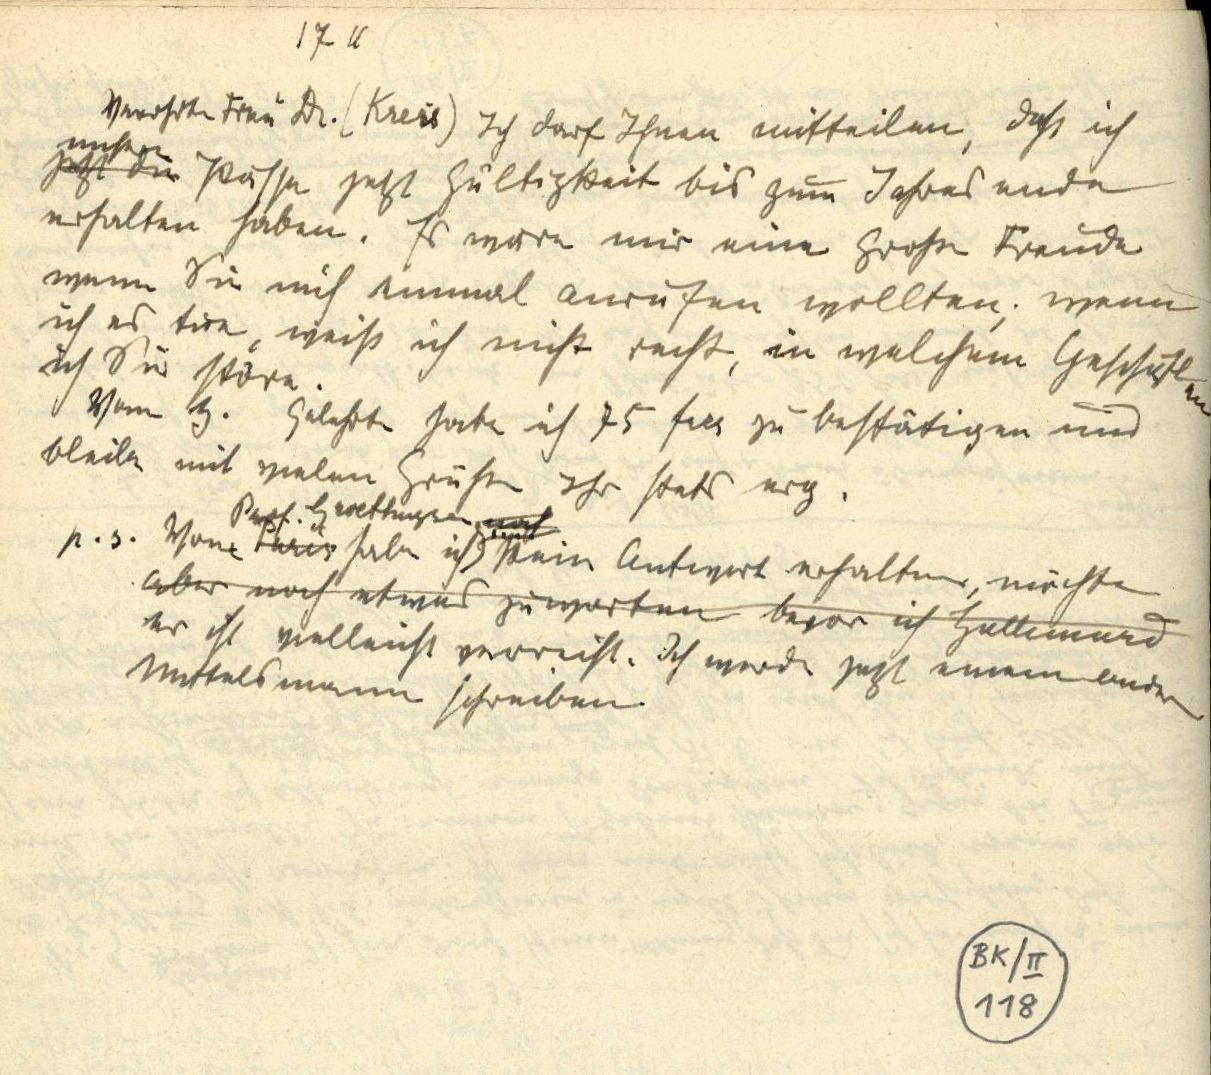 17 II
Verehrte Frau Dr. (Kreis) Ich darf Ihnen mitteilen, daß ich
unsere
jetzt die Pässe jetzt Gültigkeit bis zum Jahresende
erhalten haben. Es wäre mir eine große Freude
wenn Sie mich einmal anrufen wollten; wenn
ich es tue, weiß ich nicht recht, in welchem Geschäft
ich Sie störe.
Vom habe ich 75 frcs zu bestätigen und
bleibe mit vielen Grüßen Ihr stets erg.
Prof. Groethuysen noch
p.s. Von Paris habe ich kein Antwort erhalten, möchte
aber noch etwas zuwarten bevor ich Gallimard
er ist vielleicht verreist. Ich werde jetzt einem andern
Mittelsmann schreiben.
BK/II
118